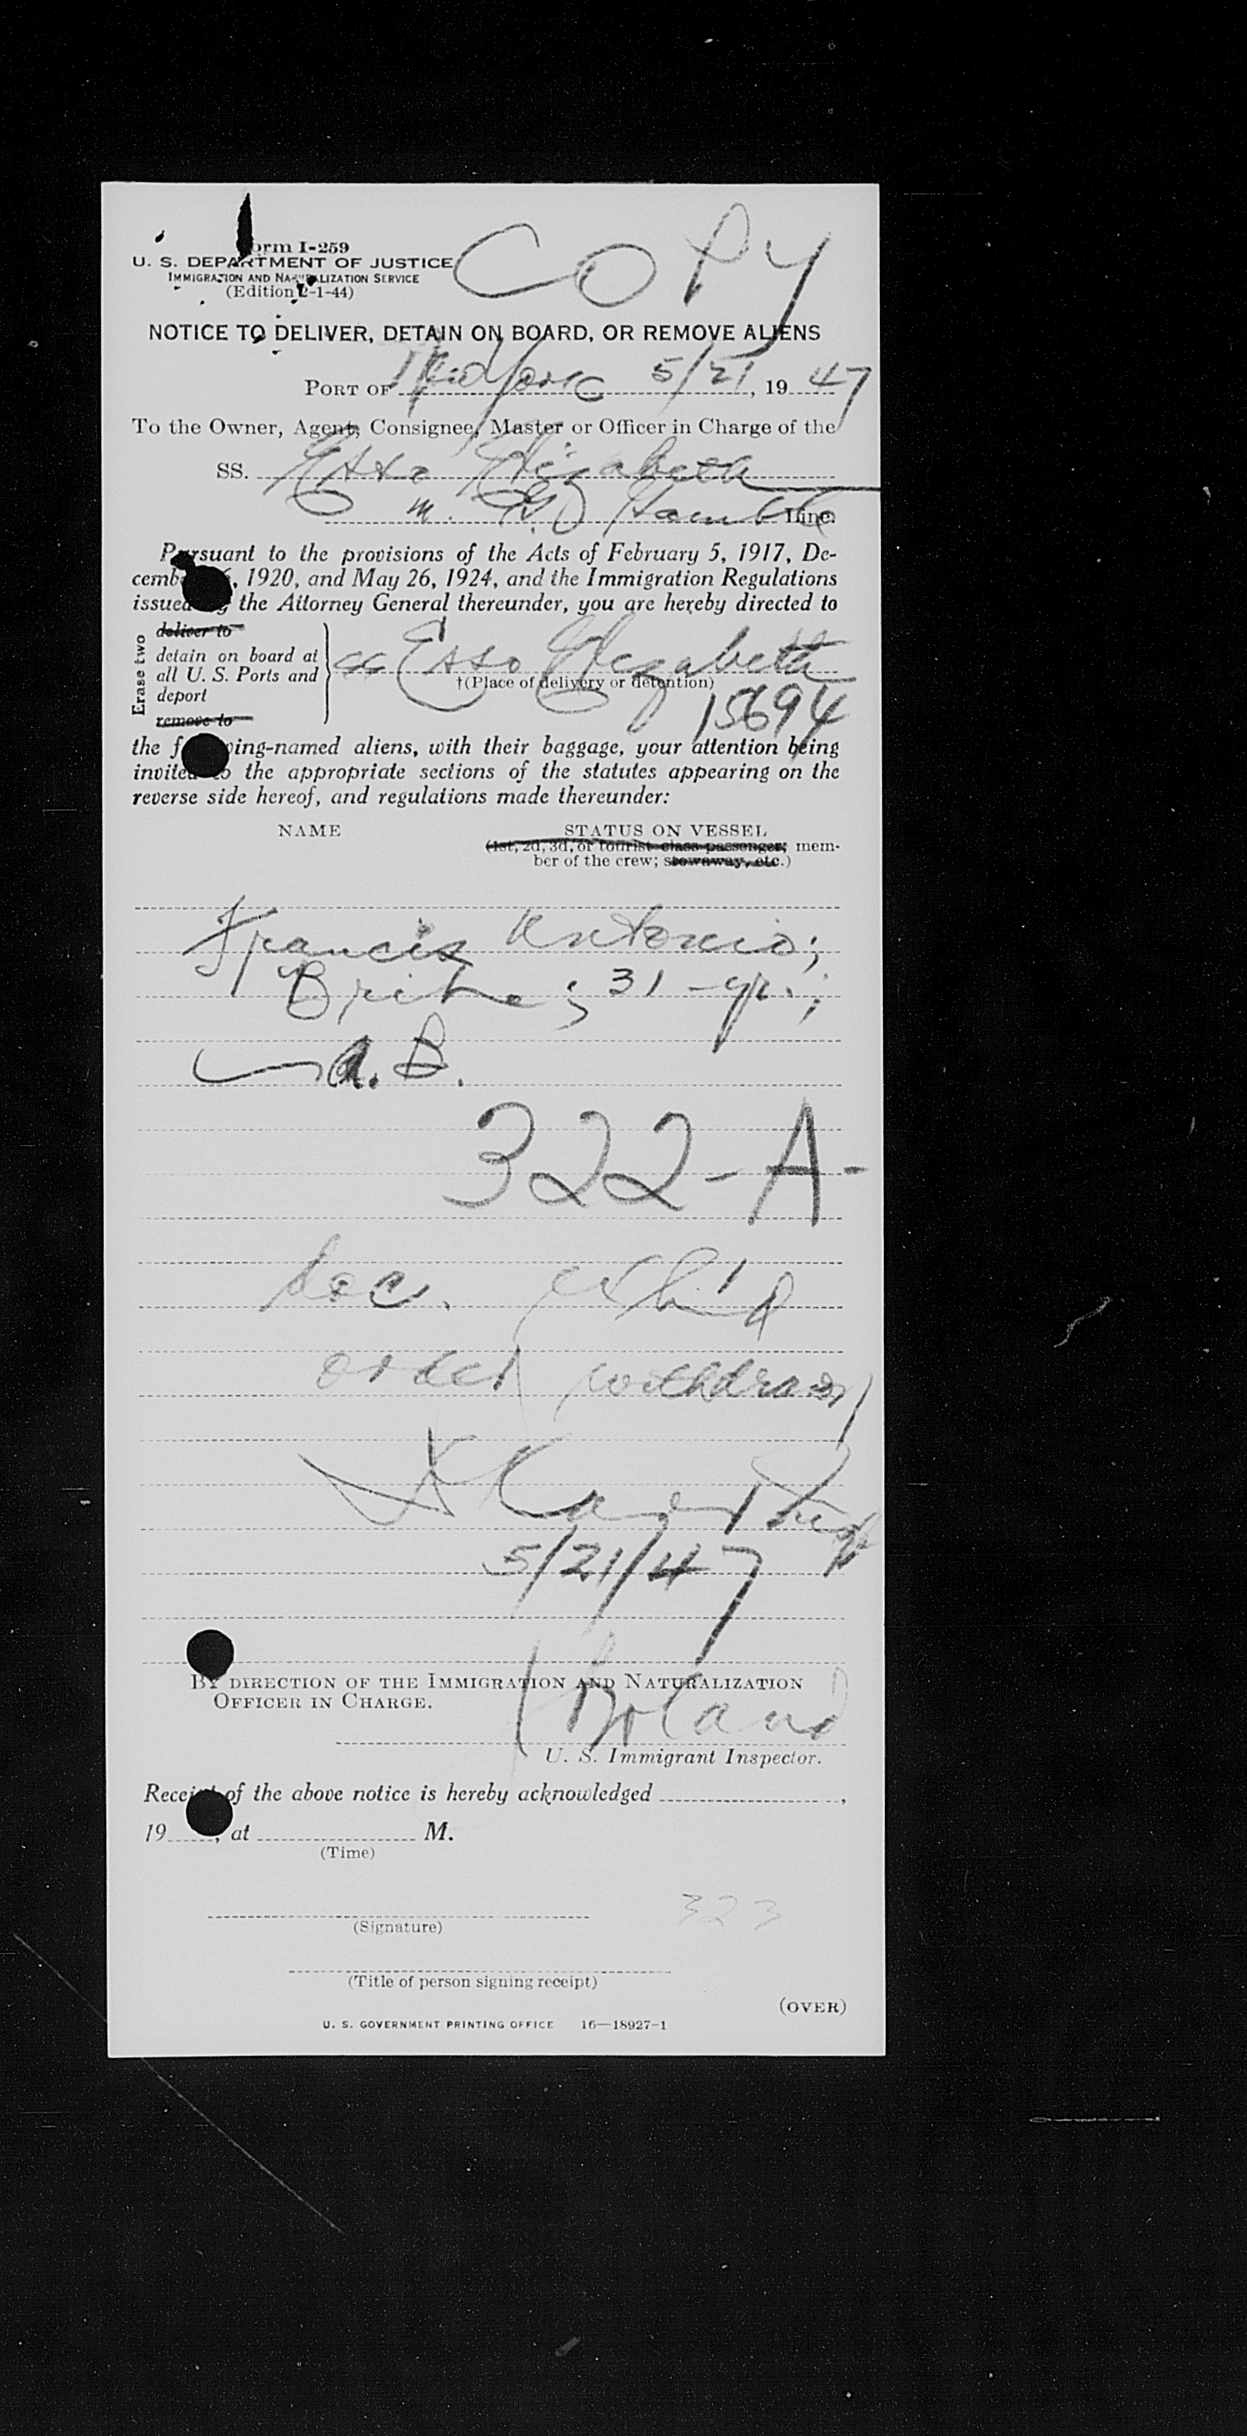 COPY
Form I-259
U. S. DEPARTMENT OF JUSTICE
IMMIGRATION AND NATURALIZATION SERVICE
(Edition 2-1-44)
NOTICE TO DELIVER, DETAIN ON BOARD, OR REMOVE ALIENS
PORT OF New York 5/21, 1947
To the Owner, Agent, Consignee, Master or Officer in Charge of the
SS. Esso Elizabeth
M. G. Gamble Line.
Pursuant to the provisions of the Acts of February 5, 1917, De-
cember 26, 1920, and May 26, 1924, and the Immigration Regulations
issued by the Attorney General thereunder, you are hereby directed to
Erase two
deliver to
detain on board at
all U. S. Ports and
deport
remove to
ss Esso Elizabeth
†(Place of delivery or detention)
15694
the following-named aliens, with their baggage, your attention being
invited to the appropriate sections of the statutes appearing on the
reverse side hereof, and regulations made thereunder:
NAME STATUS ON VESSEL
(1st, 2d, 3d, or tourist class passenger; mem-
ber of the crew; stowaway, etc.)
Francis Antonio;
Brit; 31-yr.;
A. B.
322-A-
Doc. exh'd
order withdrawn
Insp
5/21/47
BY DIRECTION OF THE IMMIGRATION AND NATURALIZATION
OFFICER IN CHARGE.
Boland
U. S. Immigrant Inspector.
Receipt of the above notice is hereby acknowledged ,
19 , at M.
(Time)
323
(Signature)
(Title of person signing receipt)
(OVER)
U. S. GOVERNMENT PRINTING OFFICE 16—18927-1